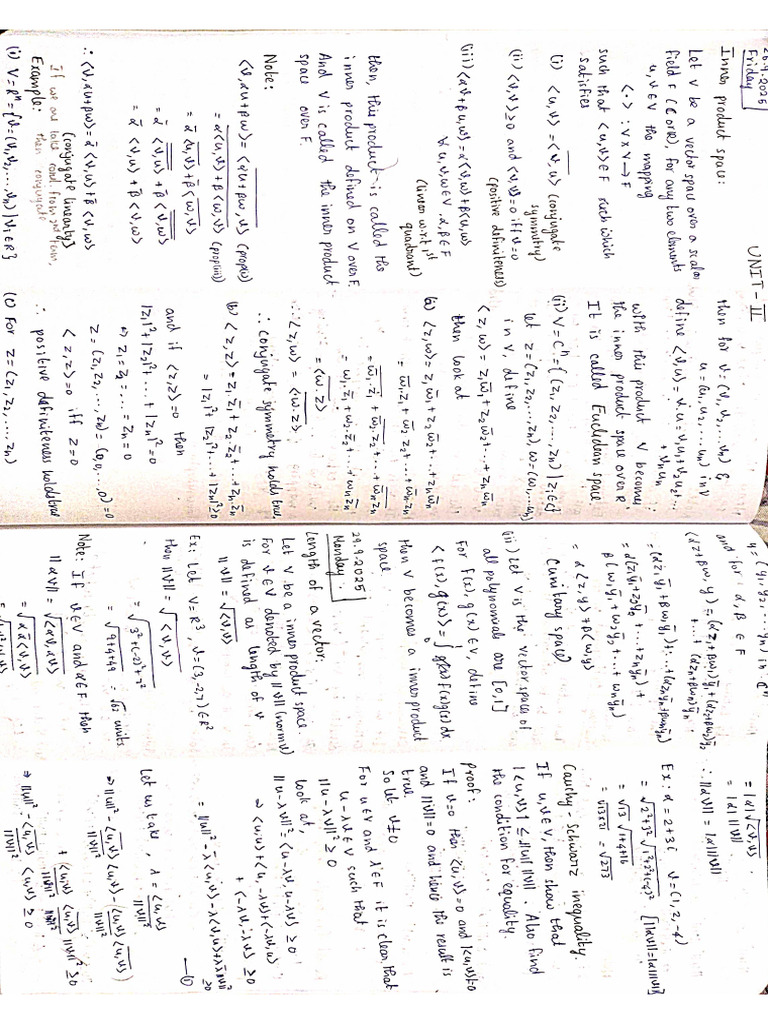 26.9.2025
Friday
UNIT - II
Inner product space:
Let V be a vector space over a scalar
field F (ℂ or ℝ), for any two elements
u, v ∈ V the mapping
<·> : V x V → F
such that <u,v> ∈ F such which
satisfies
(i) <u,v> = \overline{<v,u>} (conjugate
symmetry)
(ii) <v,v> ≥ 0 and <v,v> = 0 iff v = 0
(positive definiteness)
(iii) <αv+βu,w> = α<v,w> + β<u,w>
∀ u,v,w ∈ V, α,β ∈ F
(linear w.r.t 1st
quadrant)
then, this product is called the
inner product defined on V over F.
And V is called the inner product
space over F.
Note:
<v, αu+βw> = \overline{<αu+βw, v>} (prop(i))
= \overline{α<u,v> + β<w,v>} (prop(iii))
= ᾱ \overline{<u,v>} + β̄ \overline{<w,v>}
= ᾱ \overline{\overline{<v,u>}} + β̄ \overline{\overline{<v,w>}}
= ᾱ <v,u> + β̄ <v,w>
∴ <v, αu+βw> = ᾱ <v,u> + β̄ <v,w>
(conjugate linearty)
If we are take cond. from 2nd term,
then conjugate
Example:
(i) V = ℝⁿ = {v = (v₁, v₂, ..., vₙ) | vᵢ ∈ ℝ}
then for v = (v₁, v₂, ..., vₙ) &
u = (u₁, u₂, ..., uₙ) in V
define <v,u> = v.u = v₁u₁ + v₂u₂ + ...
+ vₙuₙ
with this product V becomes
the inner product space over ℝ.
It is called Euclidean space.
(ii) V = ℂⁿ = {(z₁, z₂, ..., zₙ) | zᵢ ∈ ℂ}
let z = (z₁, z₂, ..., zₙ), w = (w₁, ..., wₙ)
in V, define
<z,w> = z₁w̄₁ + z₂w̄₂ + ... + zₙw̄ₙ
then look at
(a) <z,w> = z₁w̄₁ + z₂w̄₂ + ... + zₙw̄ₙ
= w̄₁z₁ + w̄₂z₂ + ... + w̄ₙzₙ
= \overline{w₁.z̄₁ + w₂z̄₂ + ... + wₙz̄ₙ}
= \overline{<w.z>}
∴ <z,w> = \overline{<w.z>}
∴ conjugate symmetry holds true.
(b) <z,z> = z₁.z̄₁ + z₂.z̄₂ + ... + zₙ.z̄ₙ
= |z₁|² + |z₂|² + ... + |zₙ|² ≥ 0
and if <z,z> = 0 then
|z₁|² + |z₂|² ... + |zₙ|² = 0
⇒ z₁ = z₂ = ... = zₙ = 0
z = (z₁, z₂, ..., zₙ) = (0,0, ..., 0) = 0
<z,z> = 0 iff z = 0
∴ positive definiteness holds true
(c) For z = (z₁, z₂, ..., zₙ)
y = (y₁, y₂, ... yₙ) in ℂⁿ
and for α, β ∈ F
<αz+βw, y> = (αz₁+βw₁)ȳ₁ + (αz₂+βw₂)ȳ₂
+ ... + (αzₙ+βwₙ)ȳₙ
= (αz₁ȳ₁ + βw₁ȳ₁) + ... + (αzₙȳₙ + βwₙȳₙ)
= α(z₁ȳ₁ + z₂ȳ₂ + ... + zₙȳₙ) +
β(w₁ȳ₁ + w₂ȳ₂ + ... + wₙȳₙ)
= α<z,y> + β<w,y>
(unitary space)
(iii) Let V is the vector spaces of
all polynomials are [0,1]
For f(x), g(x) ∈ V, define
<f(x), g(x)> = ∫₀¹ f(x)g(x) dx.
then V becomes a inner product
space
29.9.2025
Monday.
Length of a vector:
Let V be a inner product space
For v ∈ V denoted by ||v|| (norm v)
is defined as length of v.
||v|| = √<v,v>
Ex: Let V = ℝ³, v = (3,-2,7) ∈ ℝ²
then ||v|| = √<v,v>
= √3²+(-2)²+7²
= √9+4+49 = √62 units.
Note: If v ∈ V and α ∈ F then
||αv|| = √<αv,αv>
= √αᾱ<v,v>
= |α|√<v,v>
= |α| ||v||
∴ ||αv|| = |α| ||v||
Ex: α = 2+3i v = (1,2,-4)
= √2²+3² √1²+2²+(-4)² [||αv|| = |α| ||v||]
= √13 √1+4+16
= √13×21 = √273
Cauchy - Schwarz inequality.
If u,v ∈ V, then show that
|<u,v>| ≤ ||u|| ||v||. Also find
the condition for equality.
Proof:
If v = 0 then <u,v> = 0 and |<u,v>| = 0
and ||v|| = 0 and hence the result is
true.
So let v ≠ 0
For u ∈ V and λ ∈ F it is clear that
u-λv ∈ V such that
||u-λv||² ≥ 0
look at,
||u-λv||² = <u-λv, u-λv> ≥ 0
⇒ <u,u> + <u,-λv> + <-λv,u>
+ <-λv,-λv> ≥ 0
= ||u||² - λ̄<u,v> - λ<v,u> + λλ̄||v||² ≥ 0
—(1)
Let us take, λ = <u,v>/||v||²
⇒ ||u||² - \overline{<u,v>}/||v||² <u,v> - <u,v>/||v||² \overline{<u,v>}
+ <u,v>/||v||² \overline{<u,v>}/||v||² ||v||² ≥ 0
⇒ ||u||² - \overline{<u,v>}/||v||² <u,v> ≥ 0